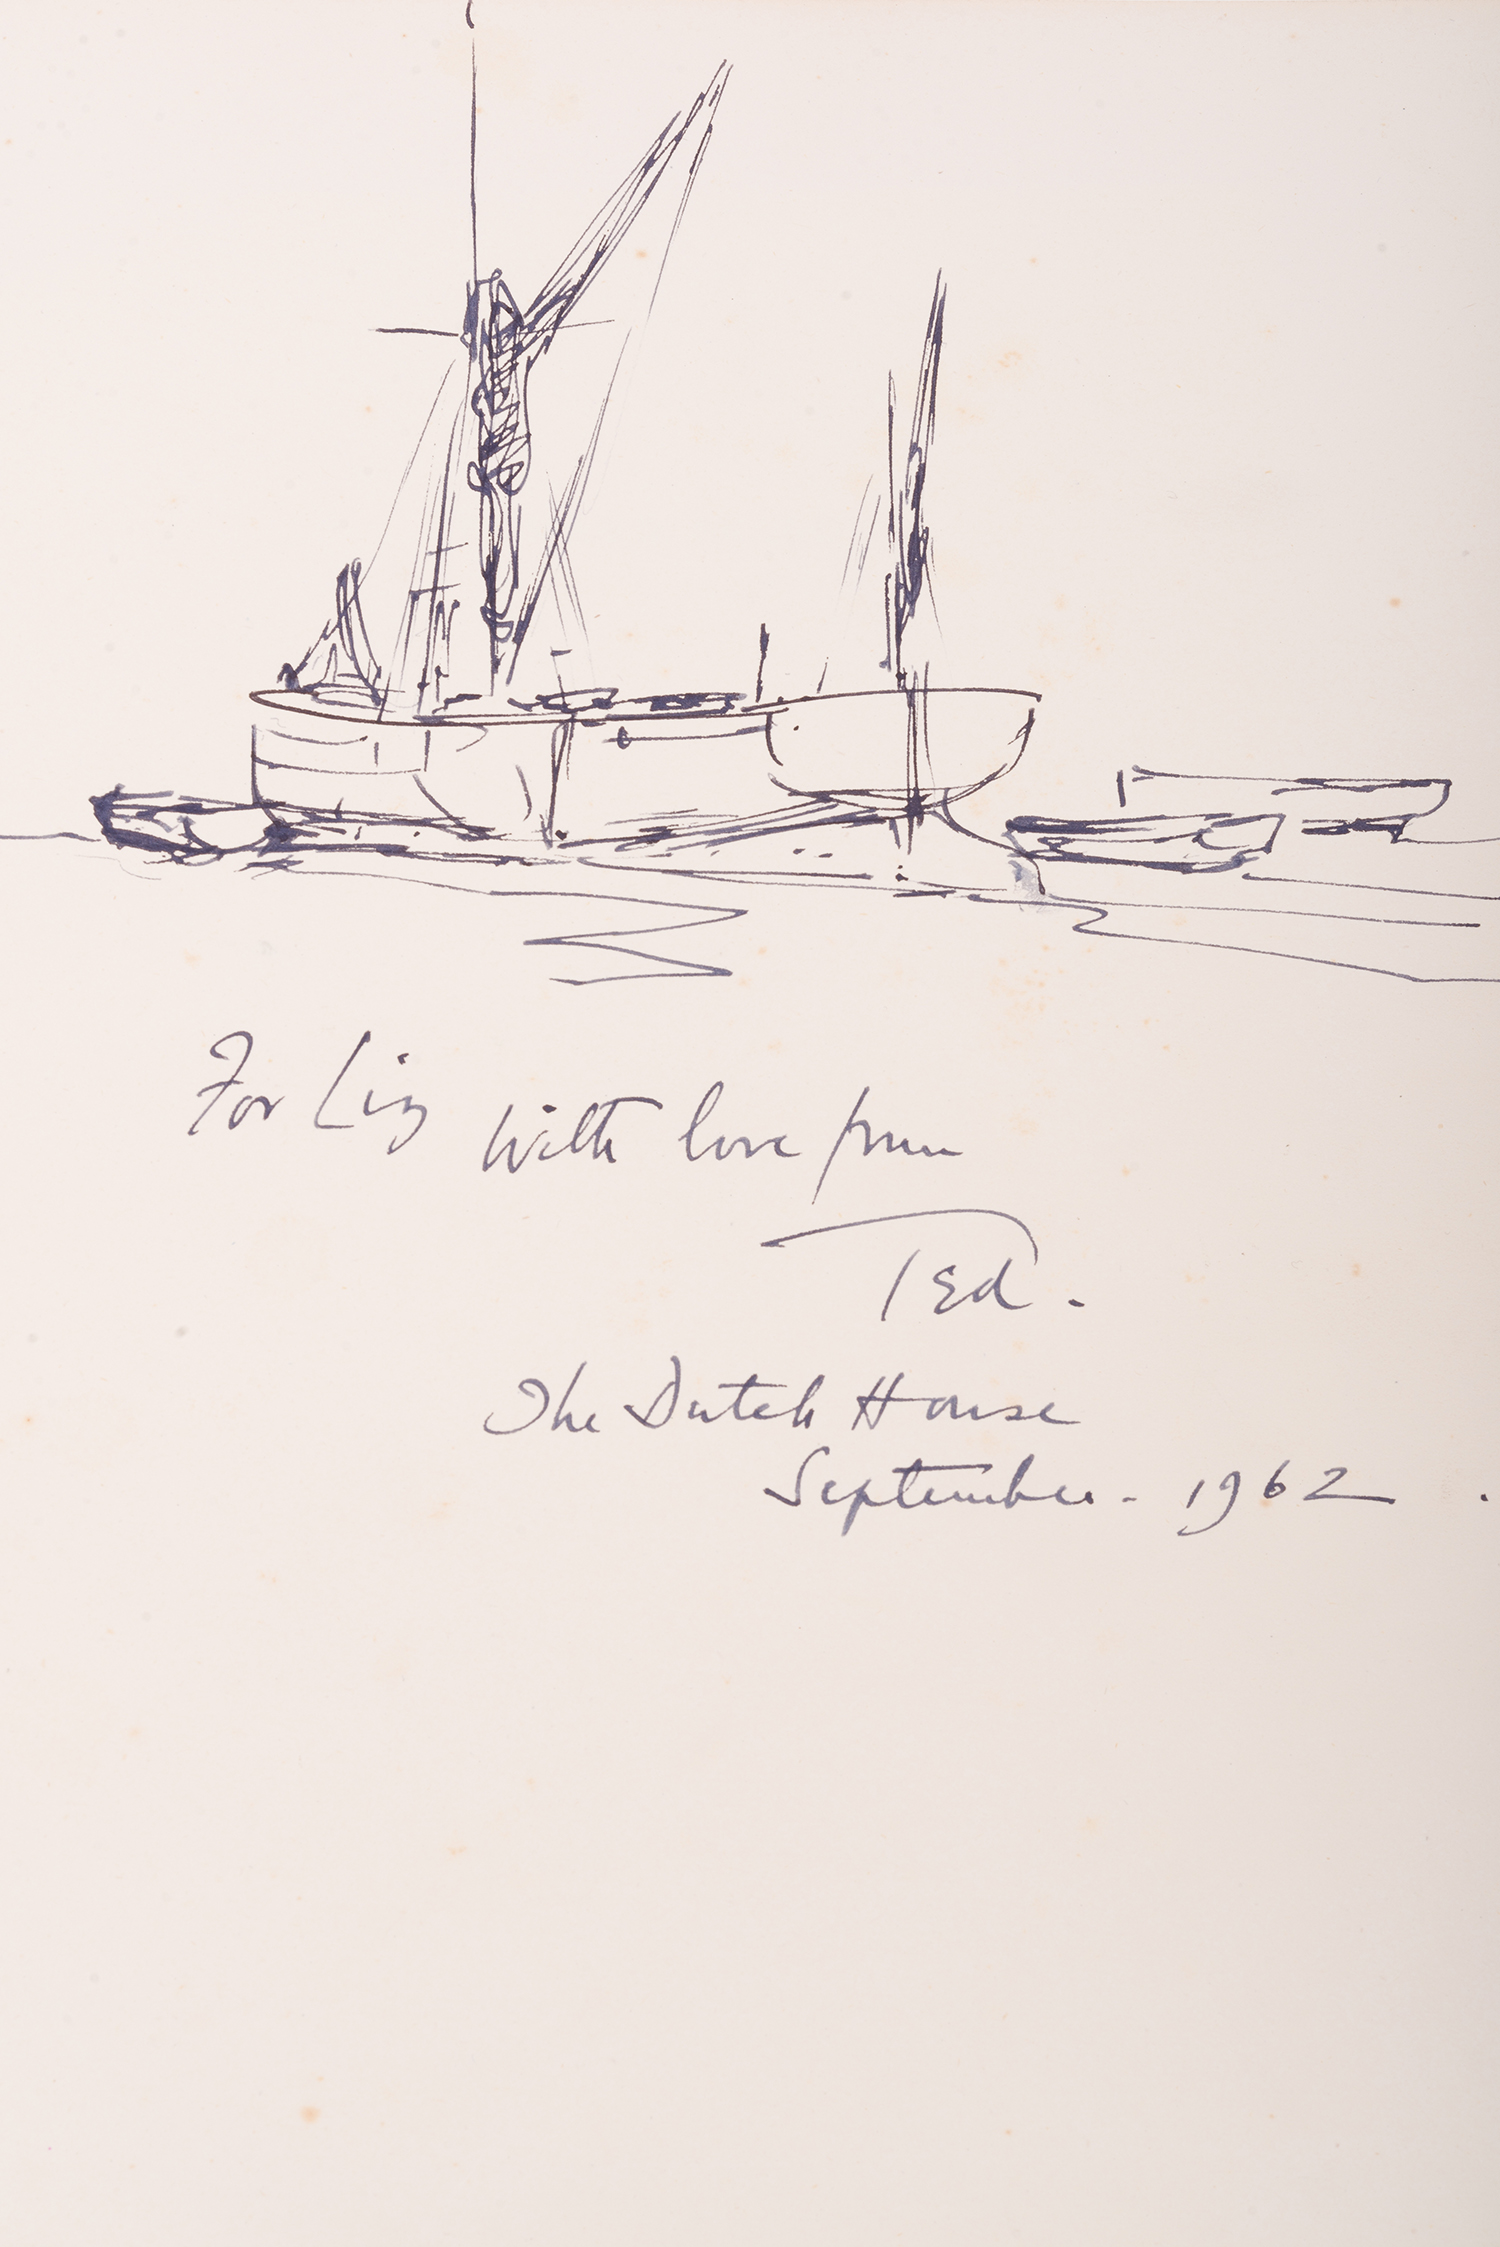 For Liz
with love from
Ted.
The Dutch House
September. 1962.